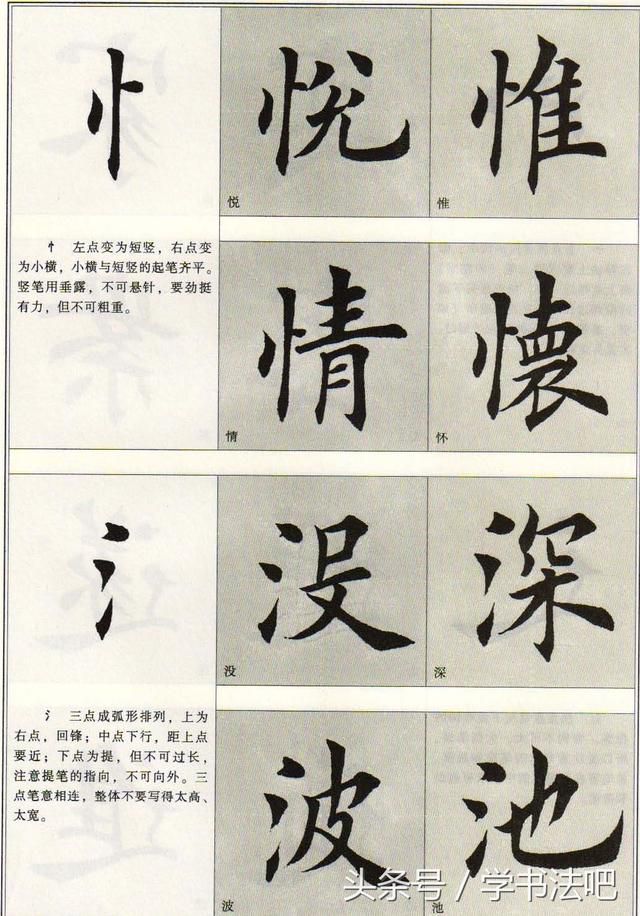 忄
悦
悦
惟
惟
忄 左点变为短竖，右点变
为小横，小横与短竖的起笔齐平。
竖笔用垂露，不可悬针，要劲挺
有力，但不可粗重。
情
情
懷
怀
氵
没
没
深
深
氵 三点成弧形排列，上为
右点，回锋；中点下行，距上点
要近；下点为提，但不可过长，
注意提笔的指向，不可向外。三
点笔意相连，整体不要写得太高、
太宽。
波
波
池
池
头条号／学书法吧